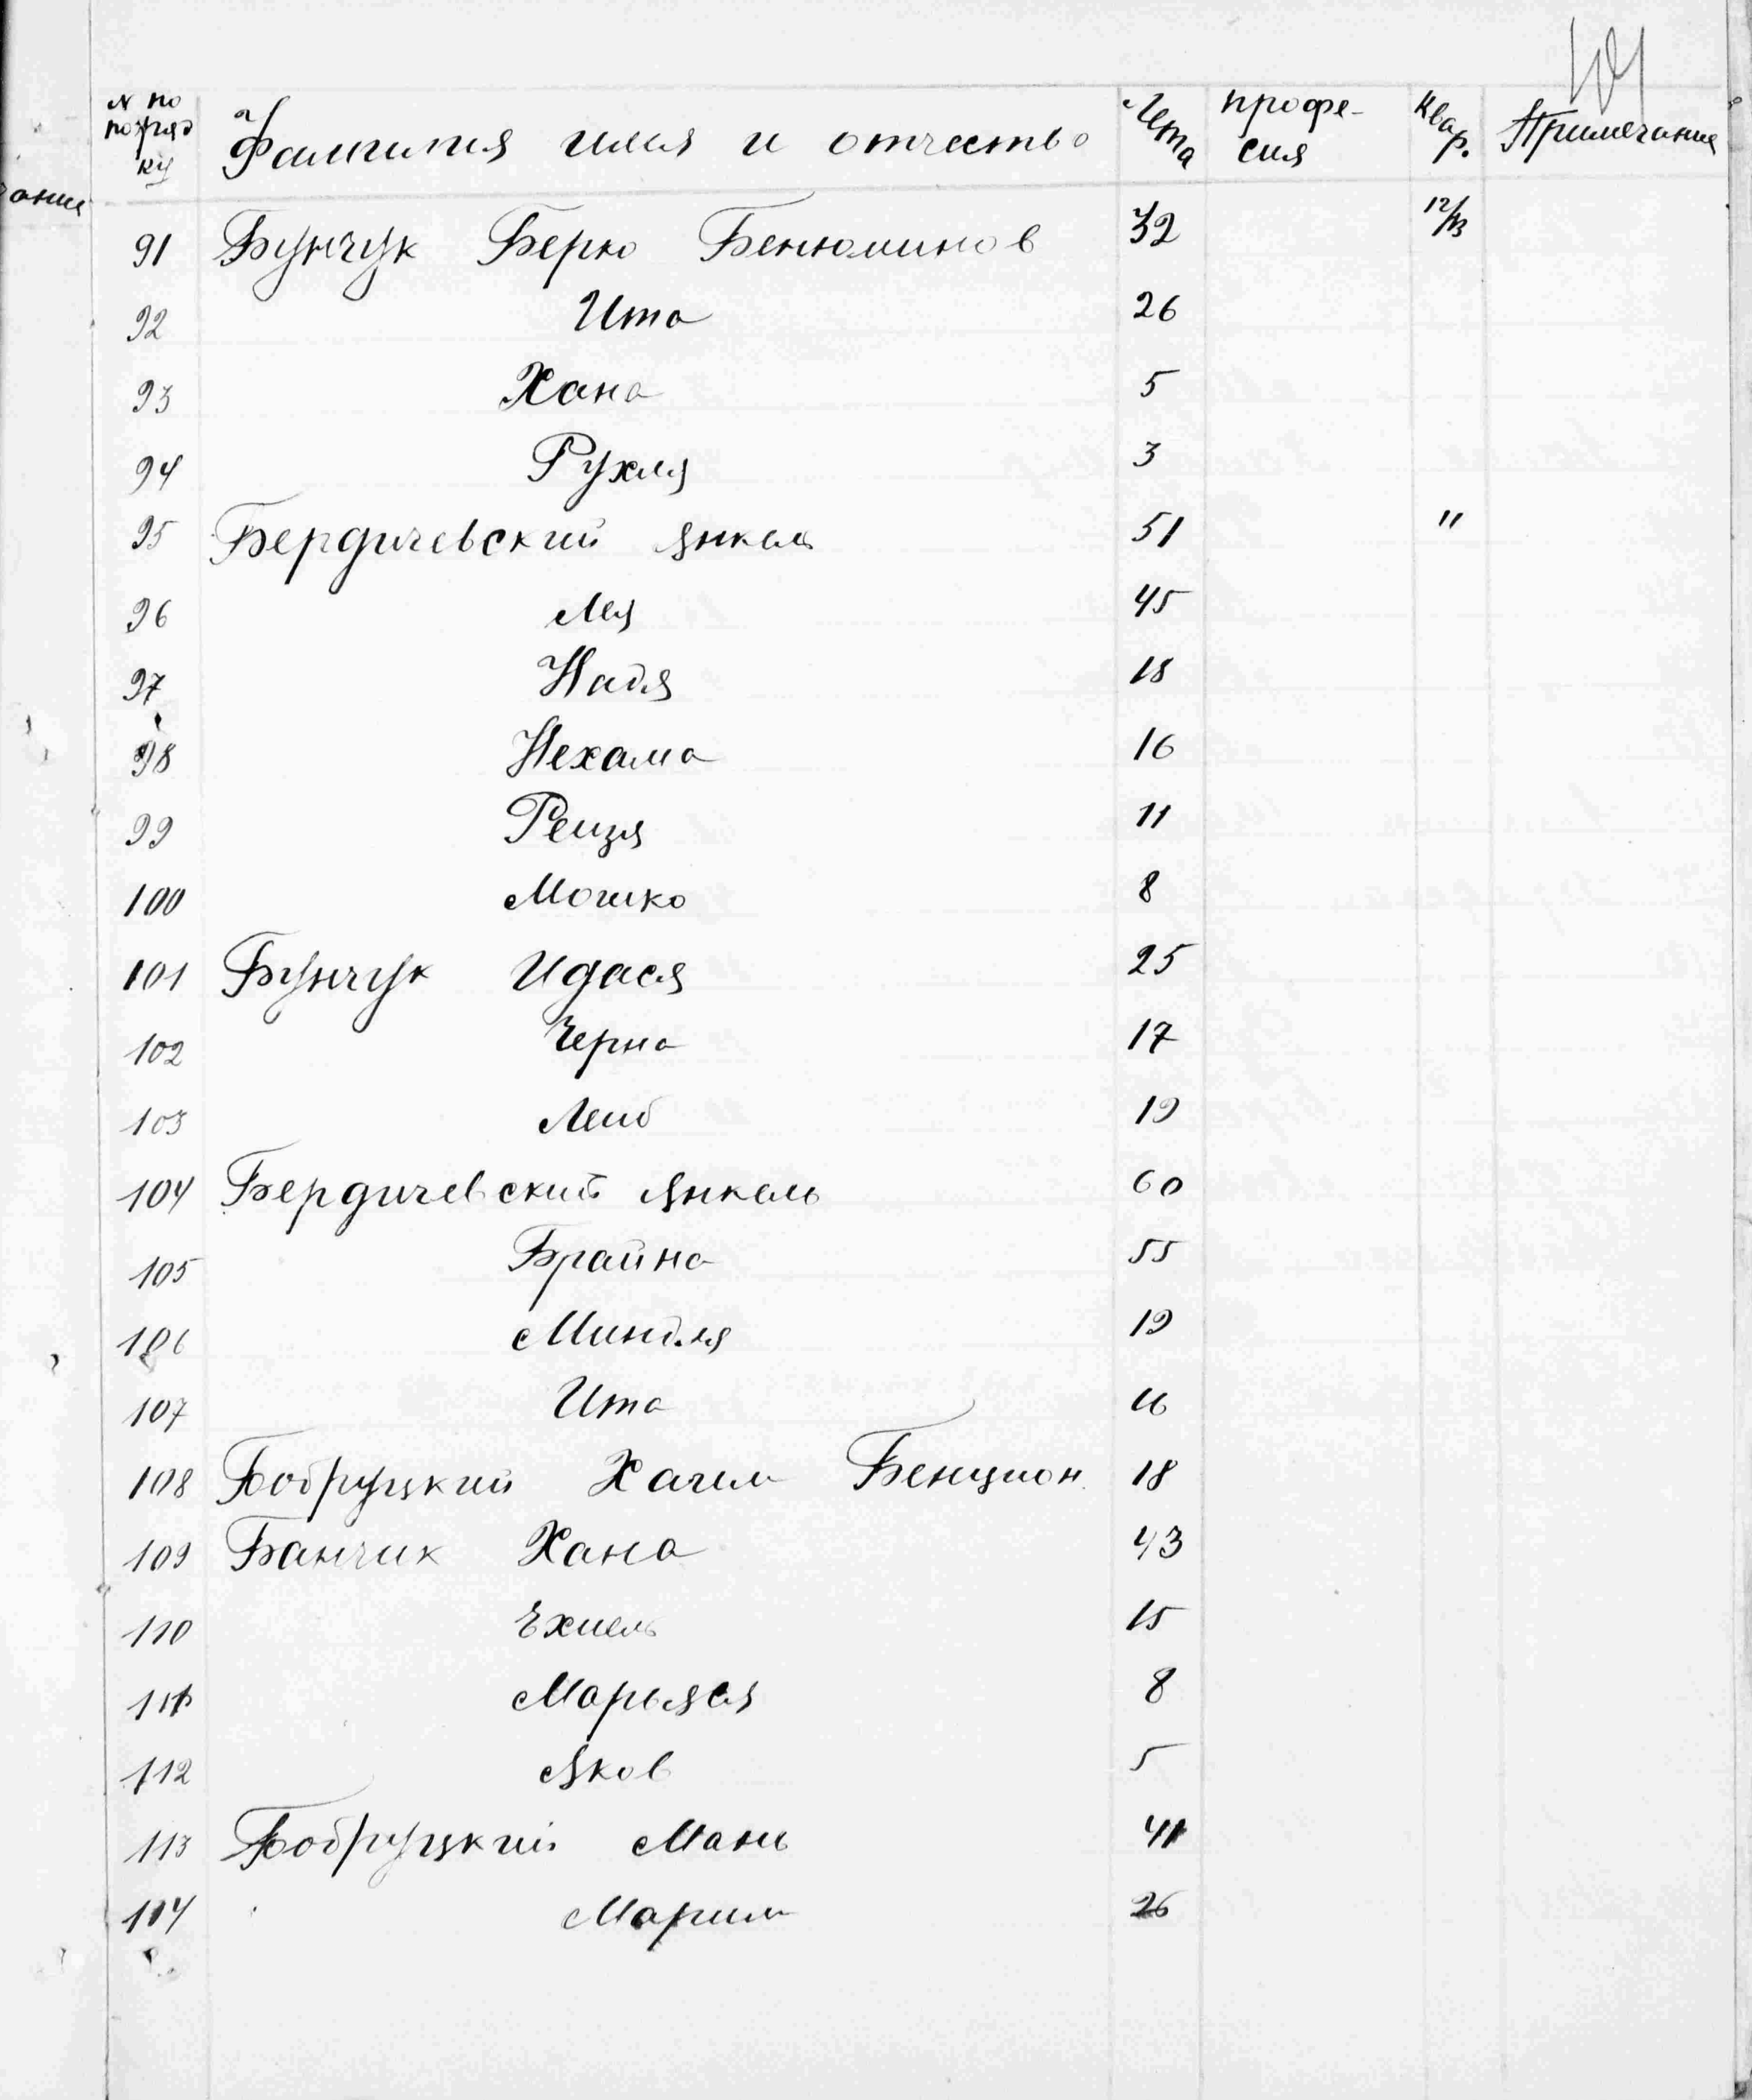 101
№ по порядку Фамилия имя и отчество Лета професия Квар. Примечание
91 Бунчук Берко Бенюминов 32 12/13
92 Ита 26
93 Хана 5
94 Рухля 3
95 Бердичевский Янкель 51 "
96 Лея 45
97 Надя 18
98 Нехама 16
99 Рейзя 11
100 Мошко 8
101 Бунчук Идася 25
102 Черна 17
103 Лейб 19
104 Бердичевский Янкель 60
105 Брайна 55
106 Миндля 19
107 Ита 16
108 Бобруцкий Хаим Бенцион. 18
109 Банчик Хана 43
110 Ехиель 15
111 Марьяся 8
112 Яков 5
113 Бобруцкий Мань 41
114 Марим 26